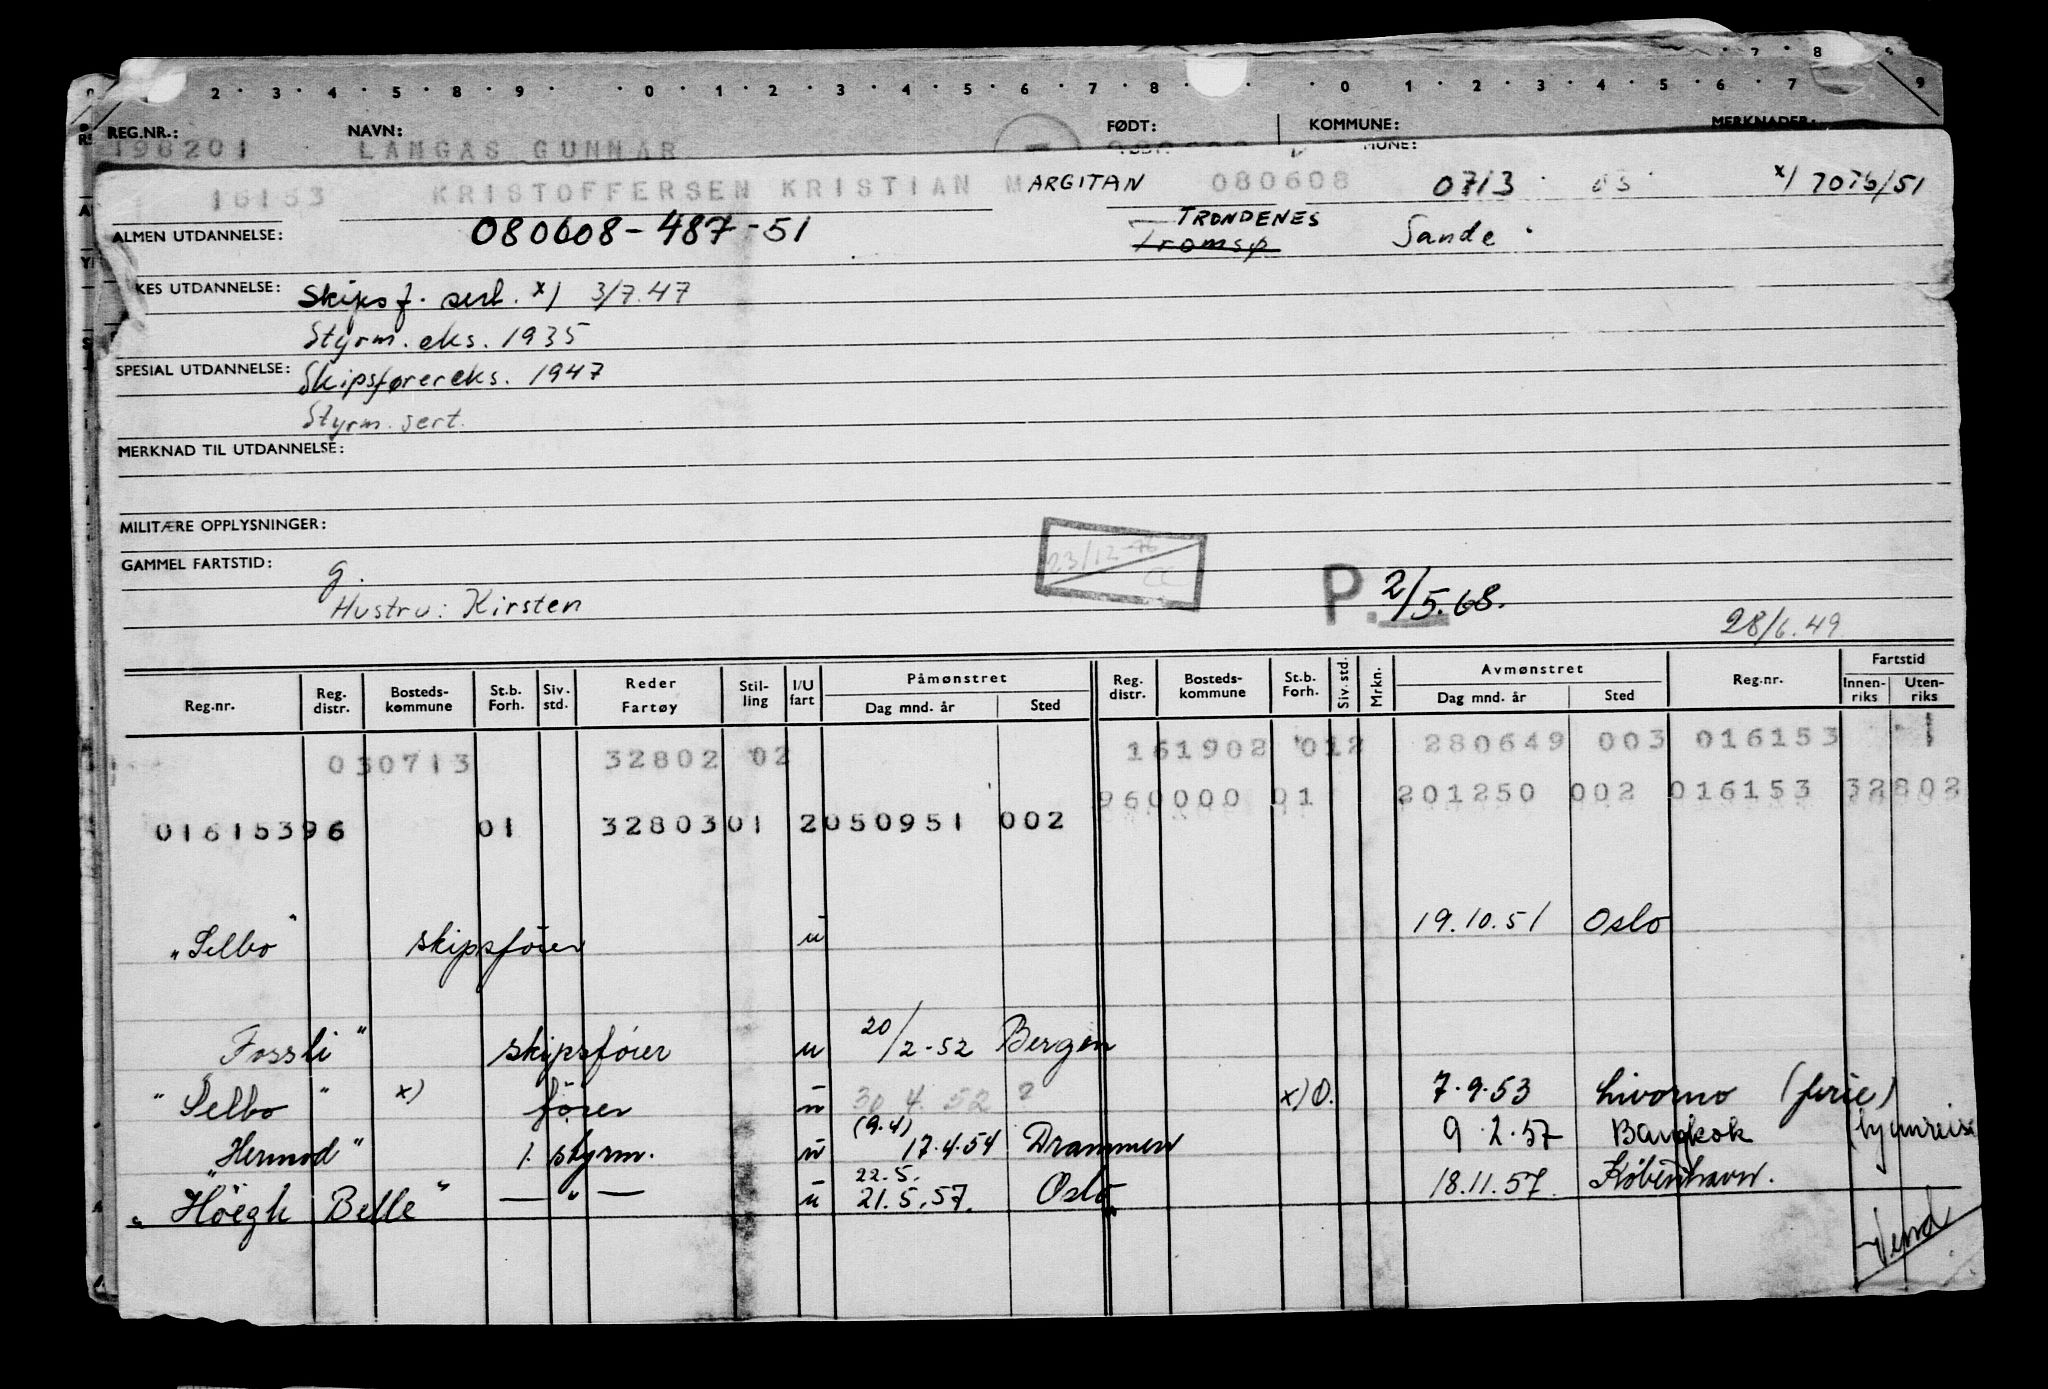 2 · 3 · 4 · 5 · 8 · 9 · · 0 · 1 · 2 · 3 · 4 · 5 · 6 · 7 · 8 · · 0 · 1 · 2 · 3 · 4 · 5 · 6 · 7 · 9
7 · 8
REG.NR.: NAVN: FØDT: KOMMUNE: MERKNADER:
196201 LANGÅS GUNNAR
MUNE:
16153 KRISTOFFERSEN KRISTIAN MARGITAN 080608 0713 03 x) 7076/51
ALMEN UTDANNELSE: 080608-487-51 TRONDENES Tromsø Sande
KES UTDANNELSE: Skipsf. sert. x) 3/7.47
Styrm. eks. 1935
SPESIAL UTDANNELSE: Skipsførereks. 1947
Styrm. sert.
MERKNAD TIL UTDANNELSE:
MILITÆRE OPPLYSNINGER:
GAMMEL FARTSTID: g.
Hustru: Kirsten P. 2/5.68.
28/6.49
Reg.nr. Reg. distr. Bosteds-kommune St.b. Forh. Siv. std. Reder Fartøy Stil-ling I/U fart Påmønstret Dag mnd. år Sted Reg. distr. Bosteds-kommune St.b. Forh. Siv. std. Mrkn. Avmønstret Dag mnd. år Sted Reg.nr. Fartstid Innen-riks Uten-riks
030713 32802 02 161902 012 280649 003 016153 -1
960000 01 201250 002 016153 32802
01615396 01 3280301 2050951 002
"Selbo" skipsfører u 19.10.51 Oslo
Fossli" skipsfører u 20/2-52 Bergen
"Selbo" x) fører u 30 4. 52 ? x) O. 7.9.53 Livorno (ferie)
"Hermod" 1. styrm. u (9.4) 17.4.54 Drammen 9 2.57 Bangkok (hjemreise
"Höegh Belle" — " — u 22.5. 21.5.57. Oslo 18.11.57. København.
Vend